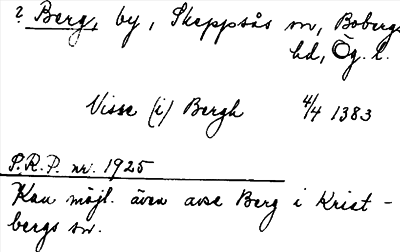 ? Berg, by, Skeppsås sn, Bobergs
hd, Ög. l.
Visse (i) Bergh 4/4 1383
P.R.P. nr. 1925
Kan möjl. även avse Berg i Krist-
bergs sn.